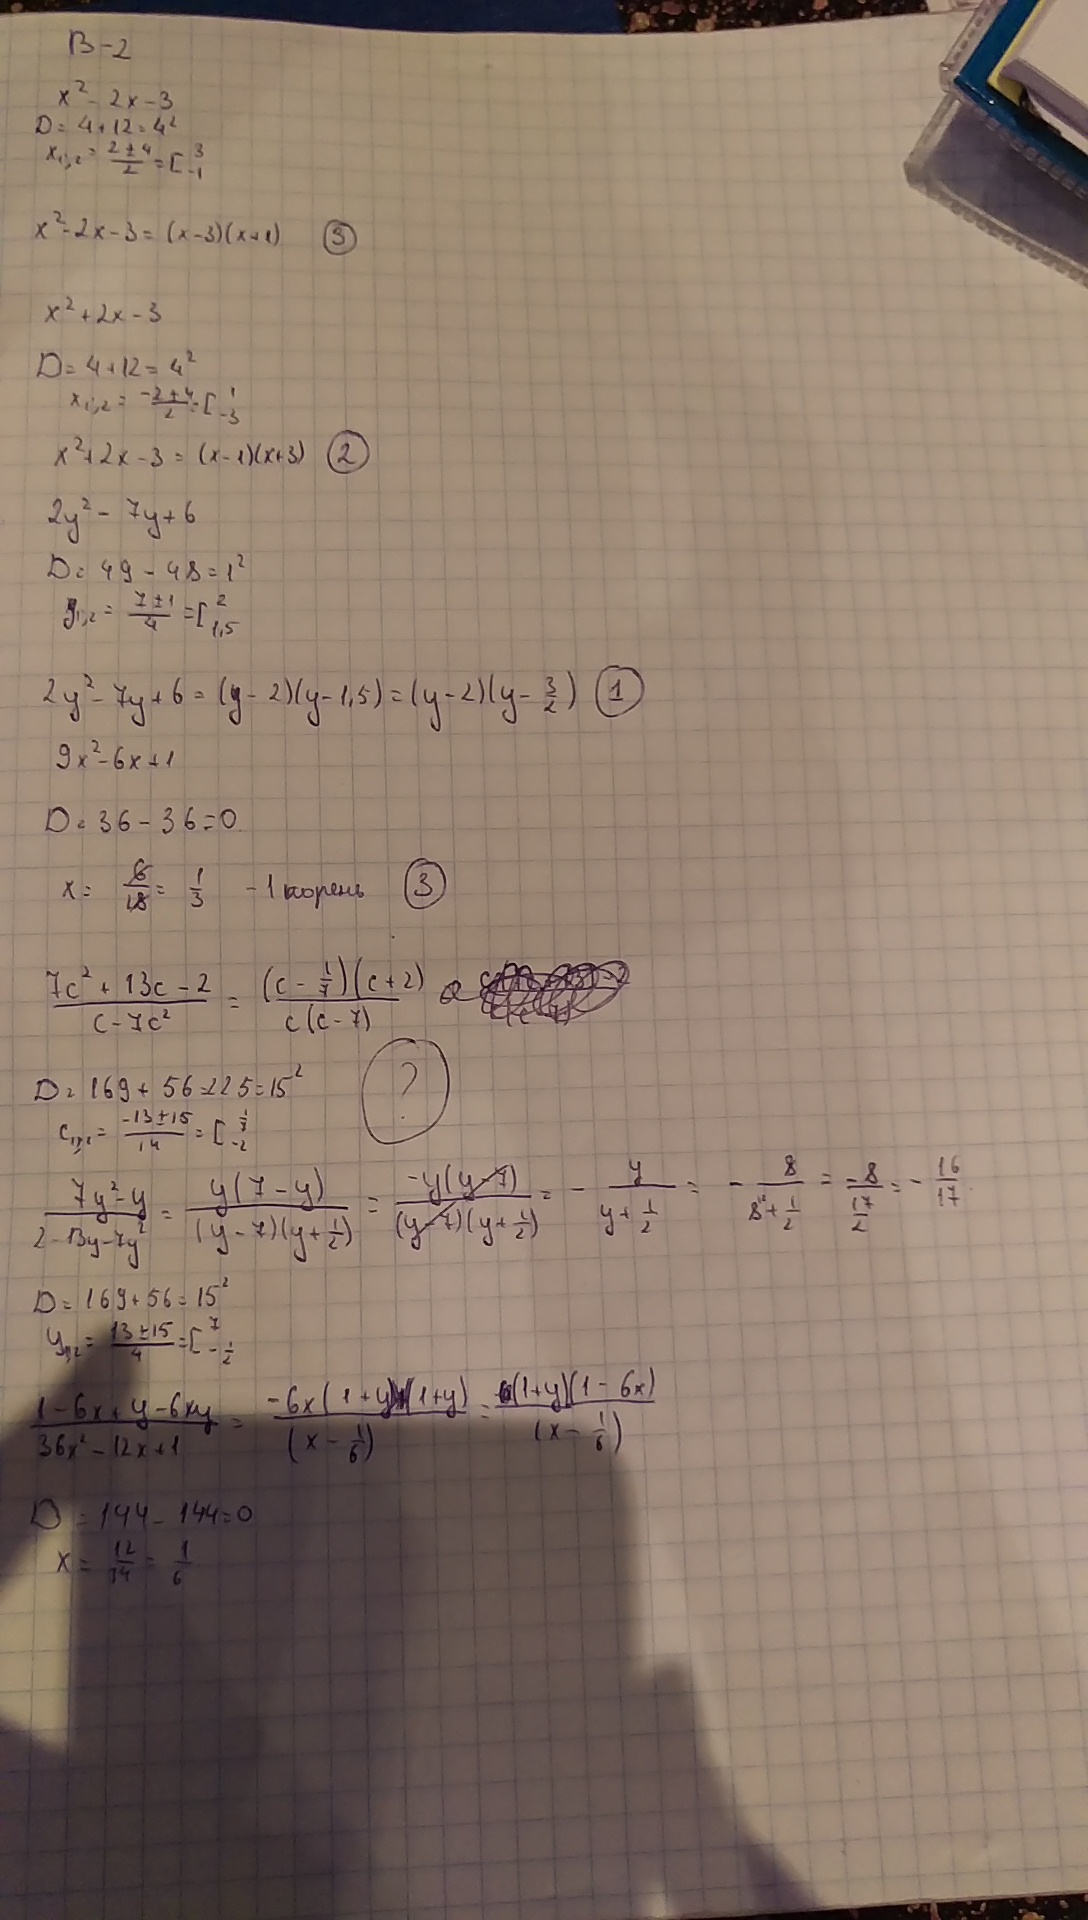 В-2
x² - 2x - 3
D = 4 + 12 = 4²
x₁,₂ = (2 ± 4)/2 = [ 3 -1
x² - 2x - 3 = (x - 3)(x + 1) ③
x² + 2x - 3
D = 4 + 12 = 4²
x₁,₂ = (-2 ± 4)/2 = [ 1 -3
x² + 2x - 3 = (x - 1)(x + 3) ②
2y² - 7y + 6
D = 49 - 48 = 1²
y₁,₂ = (7 ± 1)/4 = [ 2 1,5
2y² - 7y + 6 = (y - 2)(y - 1,5) = (y - 2)(y - 3/2) ①
9x² - 6x + 1
D = 36 - 36 = 0
x = 6/18 = 1/3 - 1 корень ③
(7c² + 13c - 2)/(c - 7c²) = ((c - 1/7)(c + 2))/(c(c - 7))
D = 169 + 56 = 225 = 15² ?
c₁,₂ = (-13 ± 15)/14 = [ 1/7 -2
(7y² - y)/(2 - 13y - 7y²) = (y(7 - y))/((y - 7)(y + 1/2)) = (-y(y - 7))/((y - 7)(y + 1/2)) = - y/(y + 1/2) = - 8/(8 + 1/2) = -8/(17/2) = - 16/17
D = 169 + 56 = 15²
y₁,₂ = (13 ± 15)/4 = [ 7 -1/2
(1 - 6x + y - 6xy)/(36x² - 12x + 1) = (-6x(1 + y)+(1 + y))/((x - 1/6)) = ((1 + y)(1 - 6x))/((x - 1/6))
D = 144 - 144 = 0
x = = 1/6